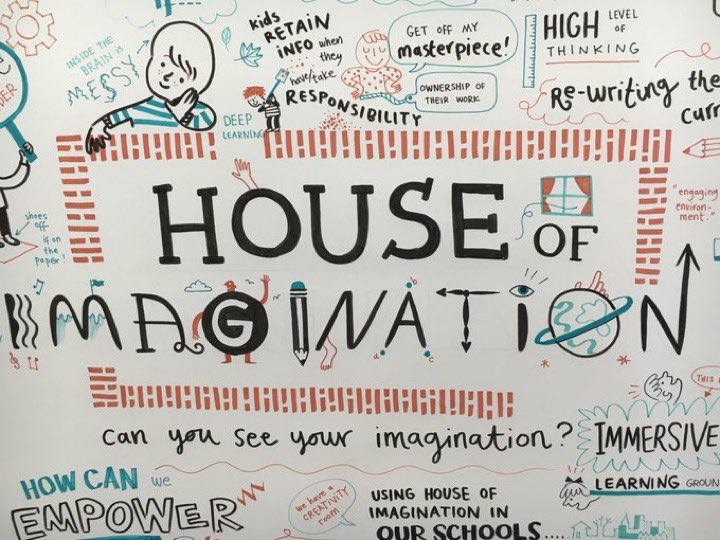 INSIDE THE
BRAIN is
MESSY
kids
RETAIN
INFO when
they
have/take
RESPONSIBILITY
DEEP
LEARNING
GET OFF MY
masterpiece!
OWNERSHIP OF
THEIR WORK
HIGH LEVEL of
THINKING
Re-writing the
curr
DER
shoes
off
if on
the
paper!
HOUSE OF
IMAGINATION
a b c
"engaging
environ-
ment."
can you see your imagination?
IMMERSIVE
THIS
LEARNING GROUN
HOW CAN we
EMPOWER
we have a
CREATIVITY
room
USING HOUSE OF
IMAGINATION IN
OUR SCHOOLS....